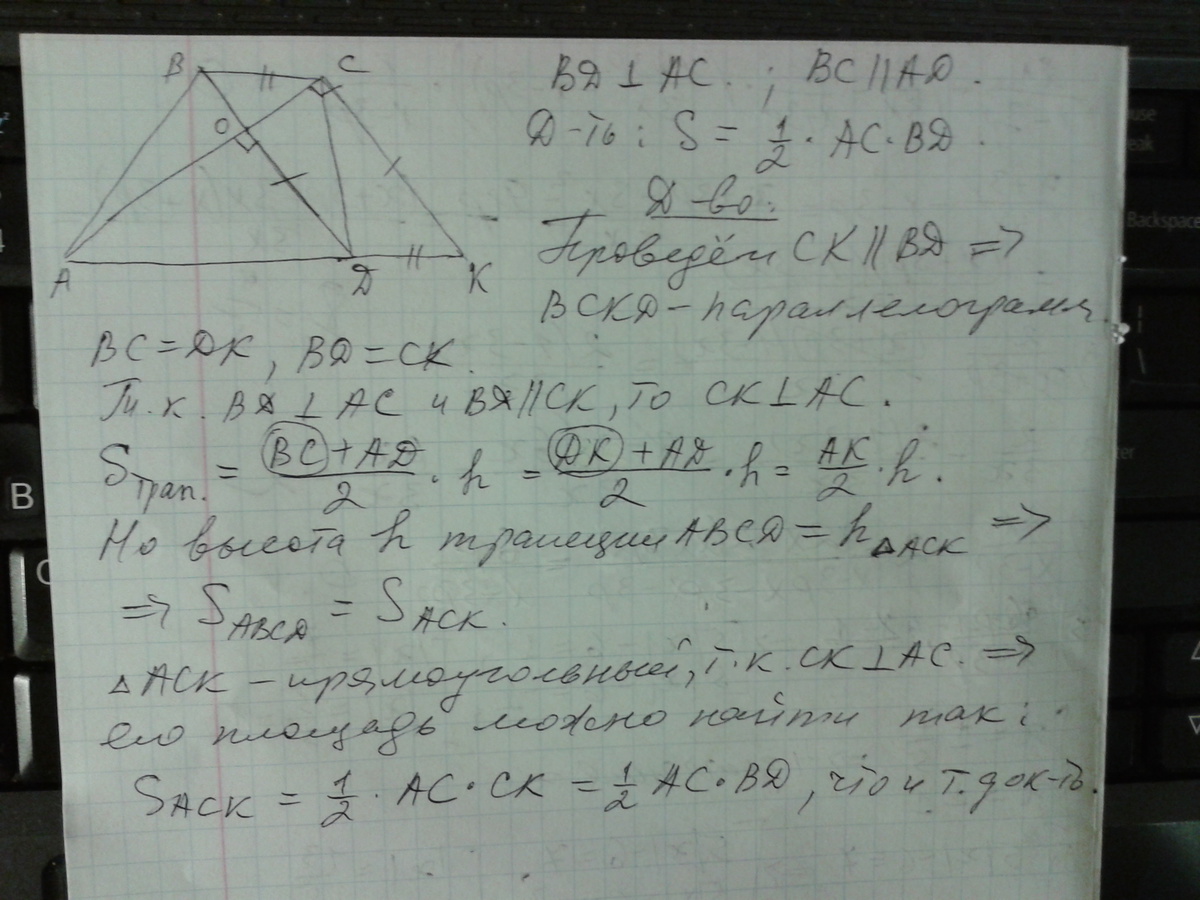 B C
O
A D K
BD ⊥ AC. ; BC || AD.
Д-ть: S = 1/2 · AC · BD.
Д-во:
Проведём CK || BD ⇒
BCKD – параллелограмм.
BC = DK, BD = CK.
Т.к. BD ⊥ AC и BD || CK, то CK ⊥ AC.
Sтрап. = (BC + AD)/2 · h = (DK + AD)/2 · h = AK/2 · h.
Но высота h трапеции ABCD = h△ACK ⇒
⇒ SABCD = SACK.
△ACK – прямоугольный, т.к. CK ⊥ AC. ⇒
его площадь можно найти так:
SACK = 1/2 · AC · CK = 1/2 AC · BD, что и т. док-ть.
Backspace
B